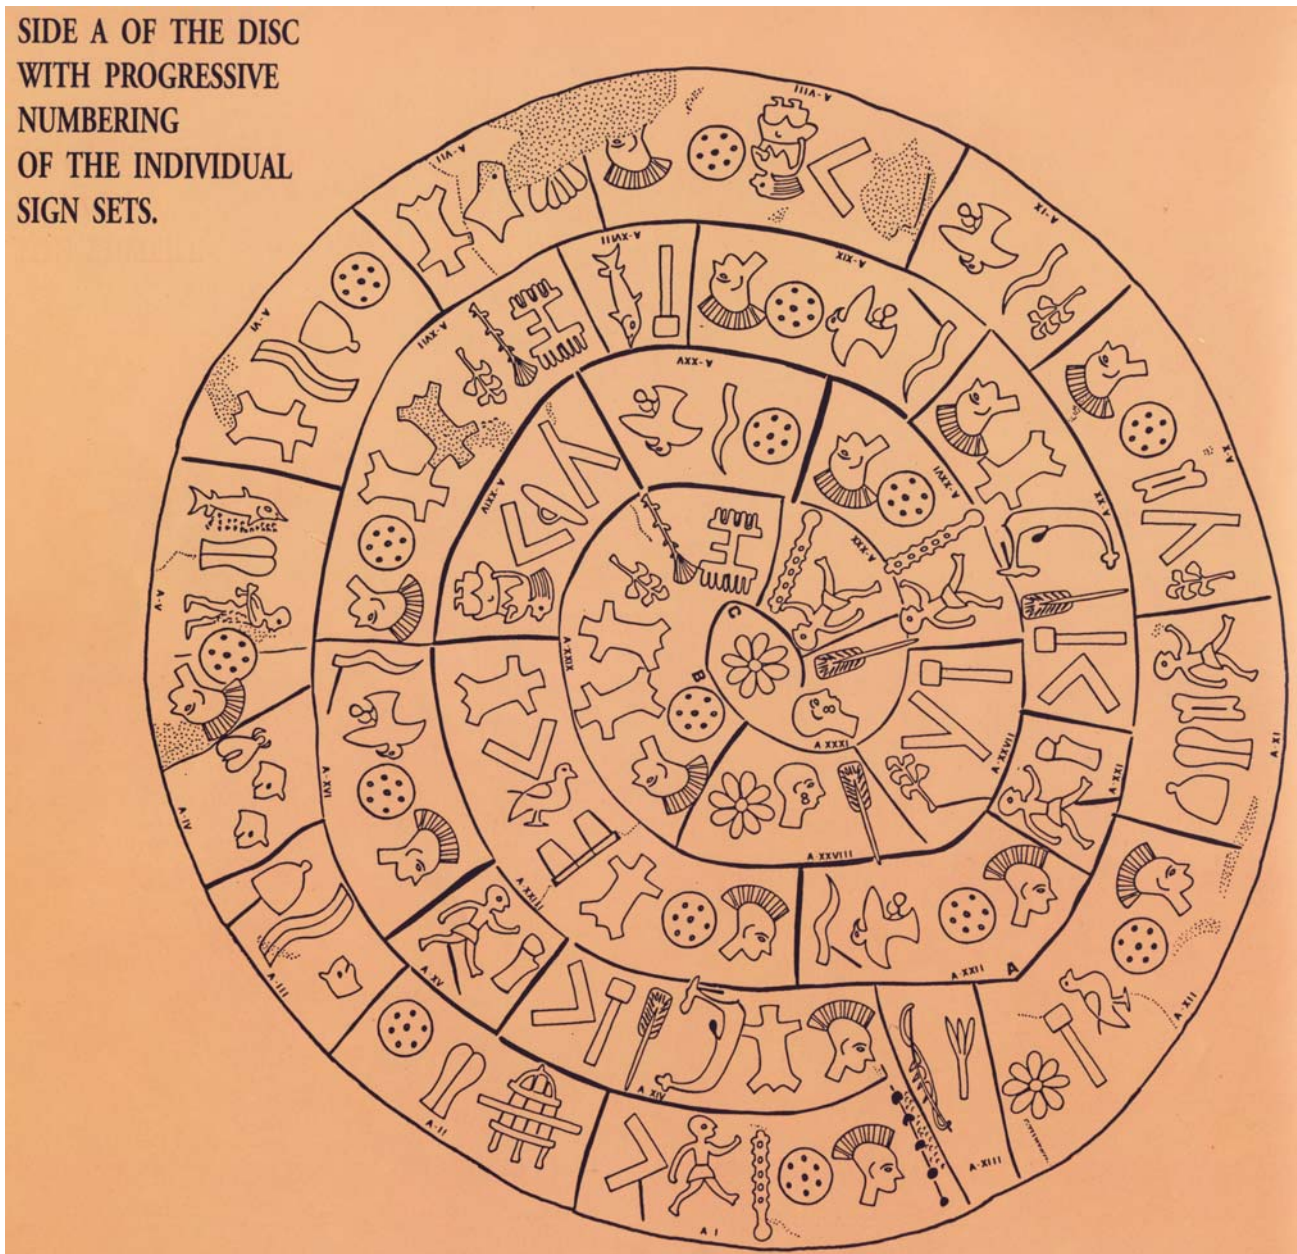 SIDE A OF THE DISC
WITH PROGRESSIVE
NUMBERING
OF THE INDIVIDUAL
SIGN SETS.
A I
A-II
A-III
A-IV
A-V
A-VI
A-VII
A-VIII
A-IX
A-X
A-XI
A-XII
A-XIII
A XIV
A-XV
A-XVI
A-XVII
A-XVIII
A-XIX
A-XX
A-XXI
A-XXII
A-XXIII
A-XXIV
A-XXV
A-XXVI
A-XXVII
A-XXVIII
A-XXIX
A-XXX
A XXXI
A
B
C